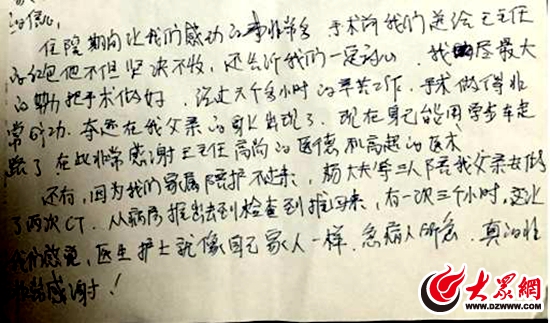 的信心。
住院期间让我的感动的事非常多 手术前我们送给王主任
的红包他不但坚决不收，还告诉我们一定放心 我尽最大
的努力把手术做好。经过六个多小时的辛苦工作，手术做得非
常成功，奇迹在我父亲的身上出现了，现在自己能用学步车走
路了 在此非常感谢王主任高尚的医德和高超的医术
还有，因为我们家属陪护不过来，杨大夫三人陪我父亲去做
了两次CT，从病房推出去到检查到推回来，有一次三个小时，
我的感觉，医生护士就像自己家人一样，急病人所急，真的非
常感谢！
大众网
WWW.DZWWW.COM